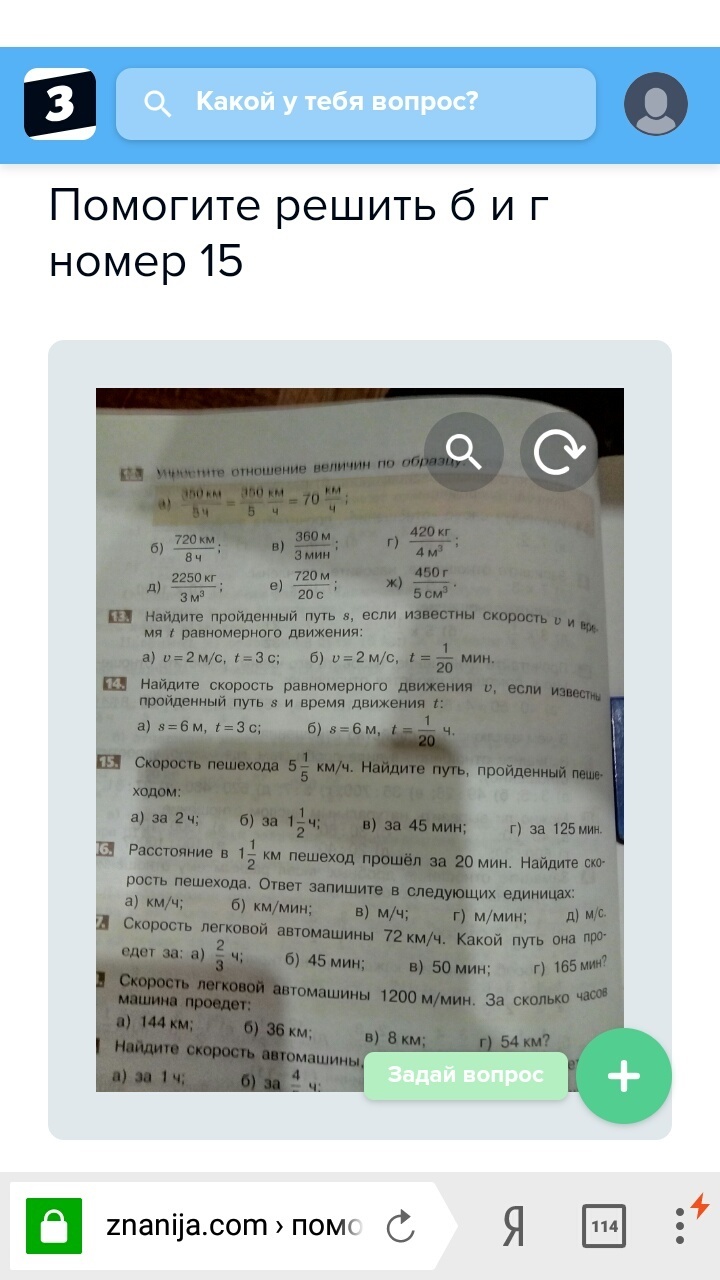 З
Какой у тебя вопрос?
Помогите решить б и г
номер 15
Упростите отношение величин по образцу:
а) 350 км / 5 ч = 350 / 5 км / ч = 70 км / ч ;
б) 720 км / 8 ч ; в) 360 м / 3 мин ; г) 420 кг / 4 м³ ;
д) 2250 кг / 3 м³ ; е) 720 м / 20 с ; ж) 450 г / 5 см³ .
13. Найдите пройденный путь s, если известны скорость v и вре-
мя t равномерного движения:
а) v = 2 м/с, t = 3 с; б) v = 2 м/с, t = 1/20 мин.
14. Найдите скорость равномерного движения v, если известны
пройденный путь s и время движения t:
а) s = 6 м, t = 3 с; б) s = 6 м, t = 1/20 ч.
15. Скорость пешехода 5 1/5 км/ч. Найдите путь, пройденный пеше-
ходом:
а) за 2 ч; б) за 1 1/2 ч; в) за 45 мин; г) за 125 мин.
6. Расстояние в 1 1/2 км пешеход прошёл за 20 мин. Найдите ско-
рость пешехода. Ответ запишите в следующих единицах:
а) км/ч; б) км/мин; в) м/ч; г) м/мин; д) м/с.
7. Скорость легковой автомашины 72 км/ч. Какой путь она про-
едет за: а) 2/3 ч; б) 45 мин; в) 50 мин; г) 165 мин?
Скорость легковой автомашины 1200 м/мин. За сколько часов
машина проедет:
а) 144 км; б) 36 км; в) 8 км; г) 54 км?
Найдите скорость автомашины,
а) за 1 ч; б) за 4 ч;
Задай вопрос
znanija.com › помо
Я
114